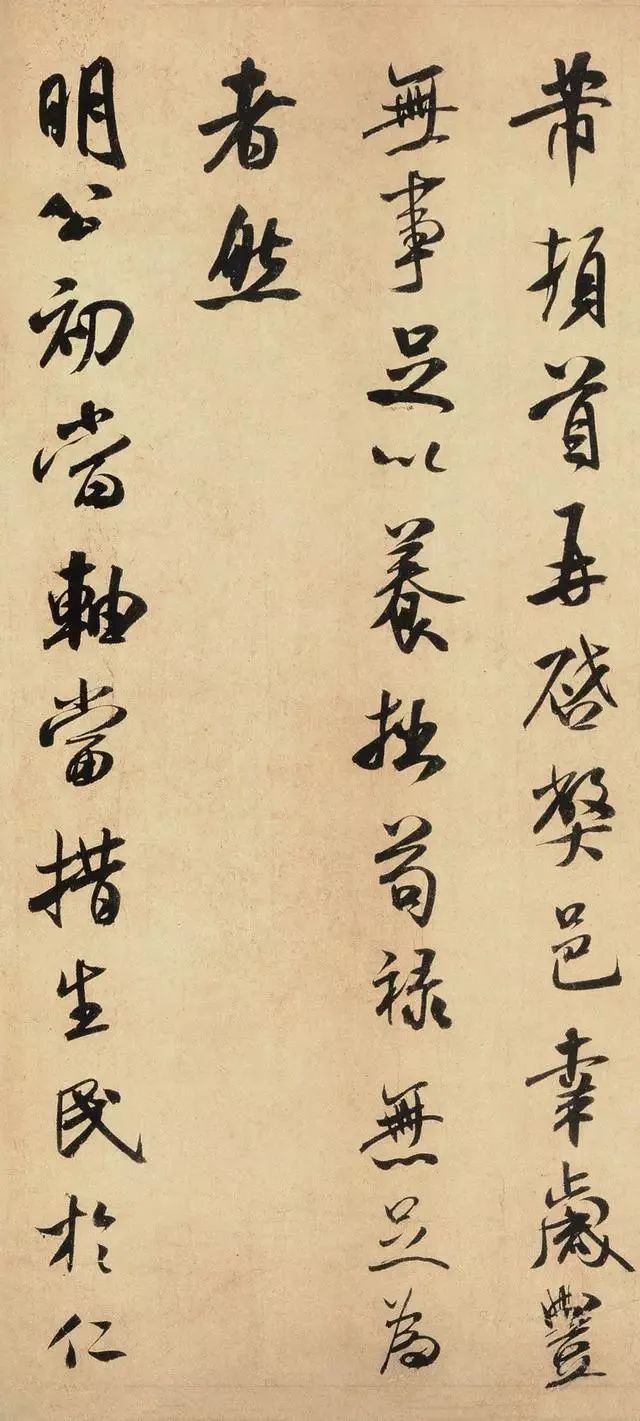 芾頓首再啓弊邑幸歲豐
無事足以養拙苟祿無足為
者然
明公初當軸當措生民於仁